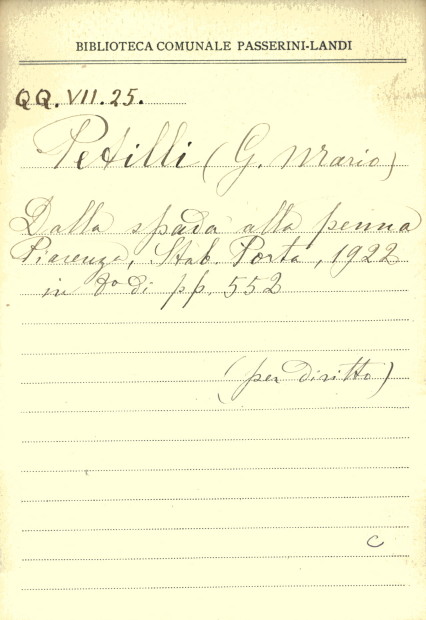 BIBLIOTECA COMUNALE PASSERINI-LANDI
QQ. VII. 25.
Petilli (G. Mario)
Dalla spada alla penna
Piacenza, Stab. Porta, 1922
in 8º di pp. 552
(per diritto)
C